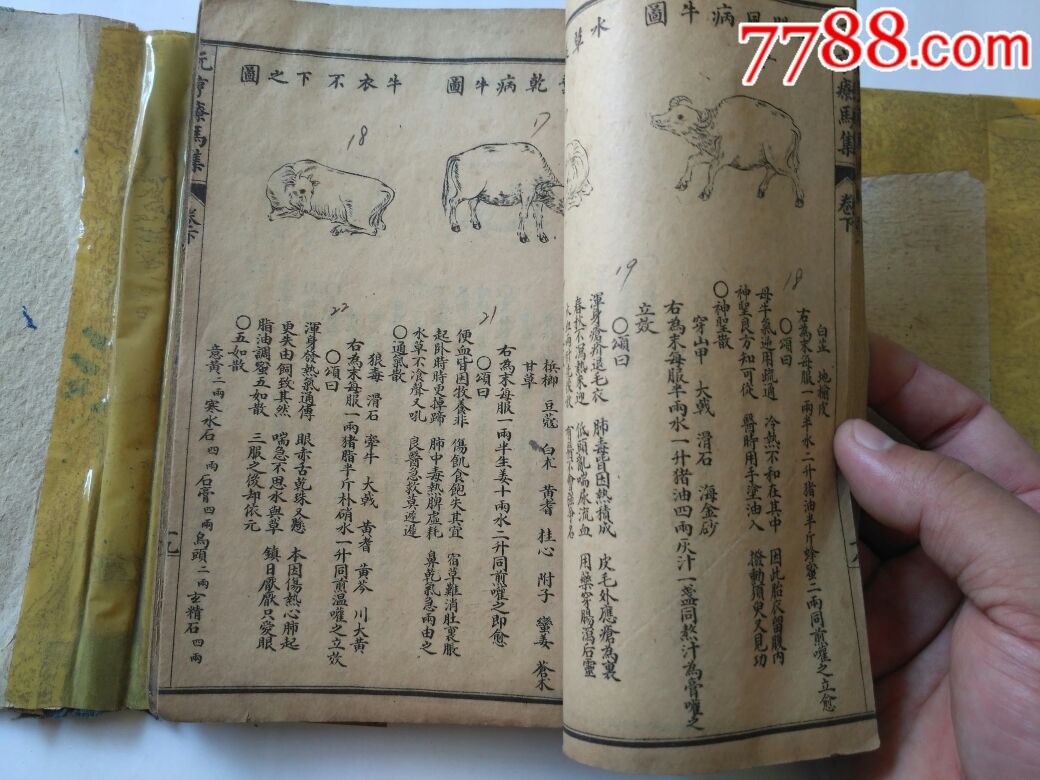 7788.com
水草
病牛圖
療馬集
卷下
白芷 地榆皮
右為末每服一兩半水二升猪油半斤蜂蜜二兩同煎嚾之立愈
18
○頌曰
母牛氣逆用疏通 冷熱不和在其中 因此胎衣留腹內
神聖良方知可從 醫時用手塗油入 撥動須臾又見功
○神聖散
穿山甲 大戟 滑石 海金砂
右為末每服半兩水一升猪油四兩灰汁一盞同熬汁為膏嚾之
立效
19
○頌曰
渾身瘡疥退毛衣 肺毒皆因熱積成 皮毛外應瘡為裏
低頭亂喘尿流血 用藥穿腸瀉石靈
乾病牛圖
牛衣不下之圖
17
18
檳榔 豆蔻 白朮 黃耆 桂心 附子 蠻姜 蒼朮
甘草
右為末每服一兩半生姜十兩水二升同煎嚾之即愈
21
○頌曰
便血皆因牧養非 傷飢食飽失其宜 宿草難消肚裏脹
起卧時時更掉蹄 肺中毒熱脾虛耗 鼻乾氣急兩由之
水草不飡聲又吼 良醫急救莫遲遲
○通氣散
狼毒 滑石 牽牛 大戟 黃耆 黃芩 川大黃
右為末每服一兩猪脂半斤朴硝水一升同煎温嚾之立效
22
○頌曰
渾身發熱氣通傳 眼赤舌乾珠又懸 本因傷熱心肺起
更失由飼致其然 喘急不思水與草 鎮日厭厭只愛眠
脂油調蜜五如散 三服之後却依元
○五如散
意黃二兩寒水石四兩石膏四兩烏頭二兩玄精石四兩
元亨療馬集
卷下
十九